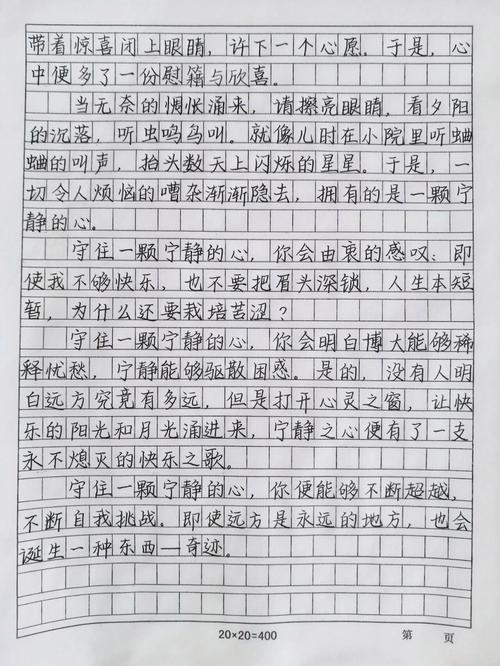 带着惊喜闭上眼睛，许下一个心愿。于是，心
中便多了一份慰籍与欣喜。
当无奈的惆怅涌来，请擦亮眼睛，看夕阳
的沉落，听虫鸣鸟叫。就像儿时在小院里听蛐
蛐的叫声，抬头数天上闪烁的星星。于是，一
切令人烦恼的嘈杂渐渐隐去，拥有的是一颗宁
静的心。
守住一颗宁静的心，你会由衷的感叹：即
使我不够快乐，也不要把眉头深锁，人生本短
暂，为什么还要栽培苦涩？
守住一颗宁静的心，你会明白博大能够稀
释忧愁，宁静能够驱散困惑。是的，没有人明
白远方究竟有多远，但是打开心灵之窗，让快
乐的阳光和月光涌进来，宁静之心便有了一支
永不熄灭的快乐之歌。
守住一颗宁静的心，你便能够不断超越，
不断自我挑战。即使远方是永远的地方，也会
诞生一种东西—奇迹。
20×20=400
第 页